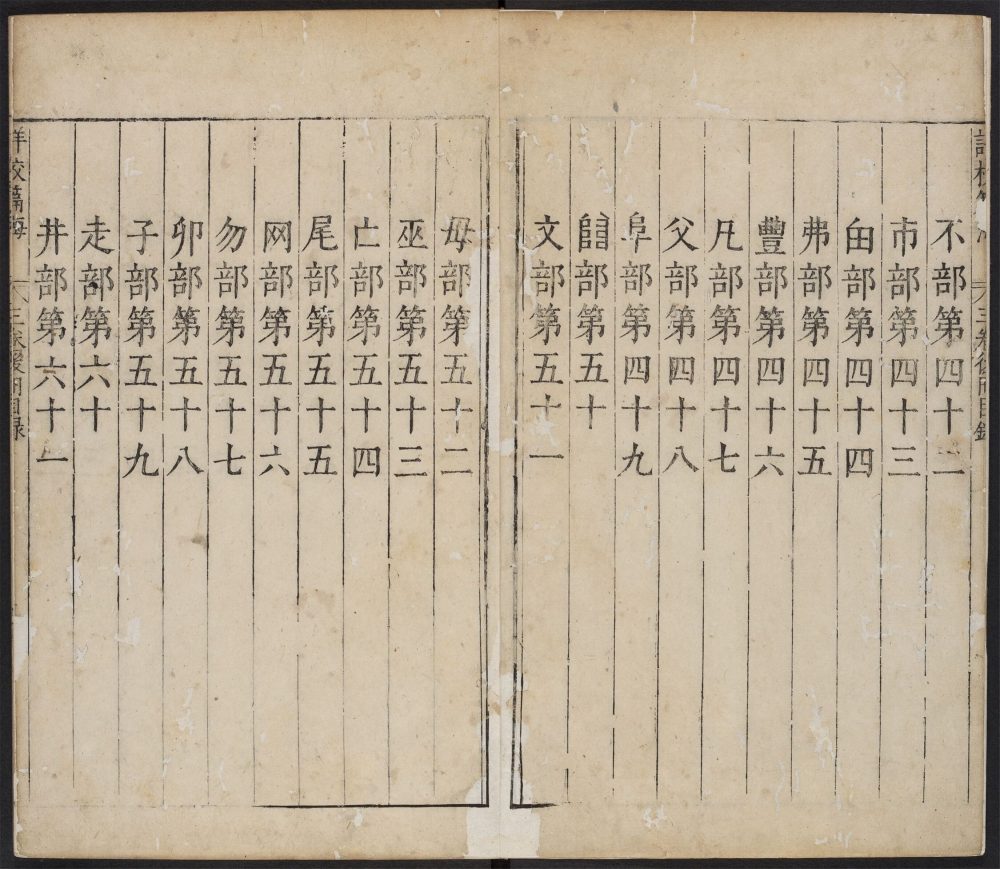 不部第四十二
市部第四十三
甶部第四十四
弗部第四十五
豐部第四十六
凡部第四十七
父部第四十八
阜部第四十九
𨺅部第五十
文部第五十一
毋部第五十二
巫部第五十三
亡部第五十四
尾部第五十五
网部第五十六
勿部第五十七
卯部第五十八
子部第五十九
走部第六十
井部第六十一
詳校篇海
三卷後附目錄